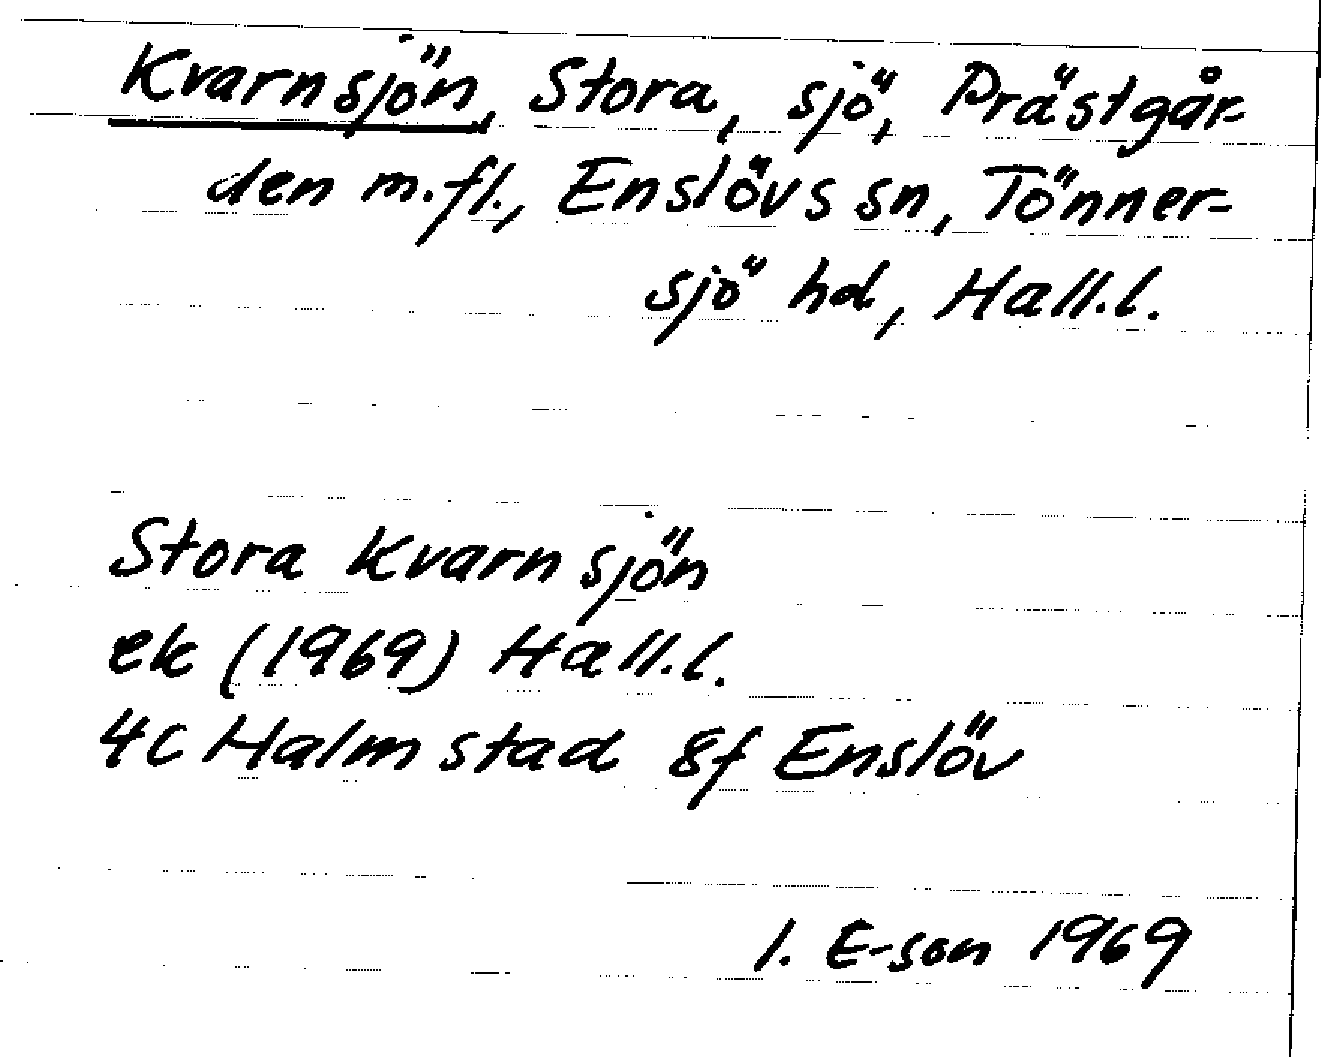 Kvarnsjön, Stora, sjö, Prästgår-
den m.fl., Enslövs sn, Tönner-
sjö hd, Hall.l.
Stora Kvarnsjön
ek (1969) Hall.l.
4C Halmstad 8f Enslöv
I. E-son 1969